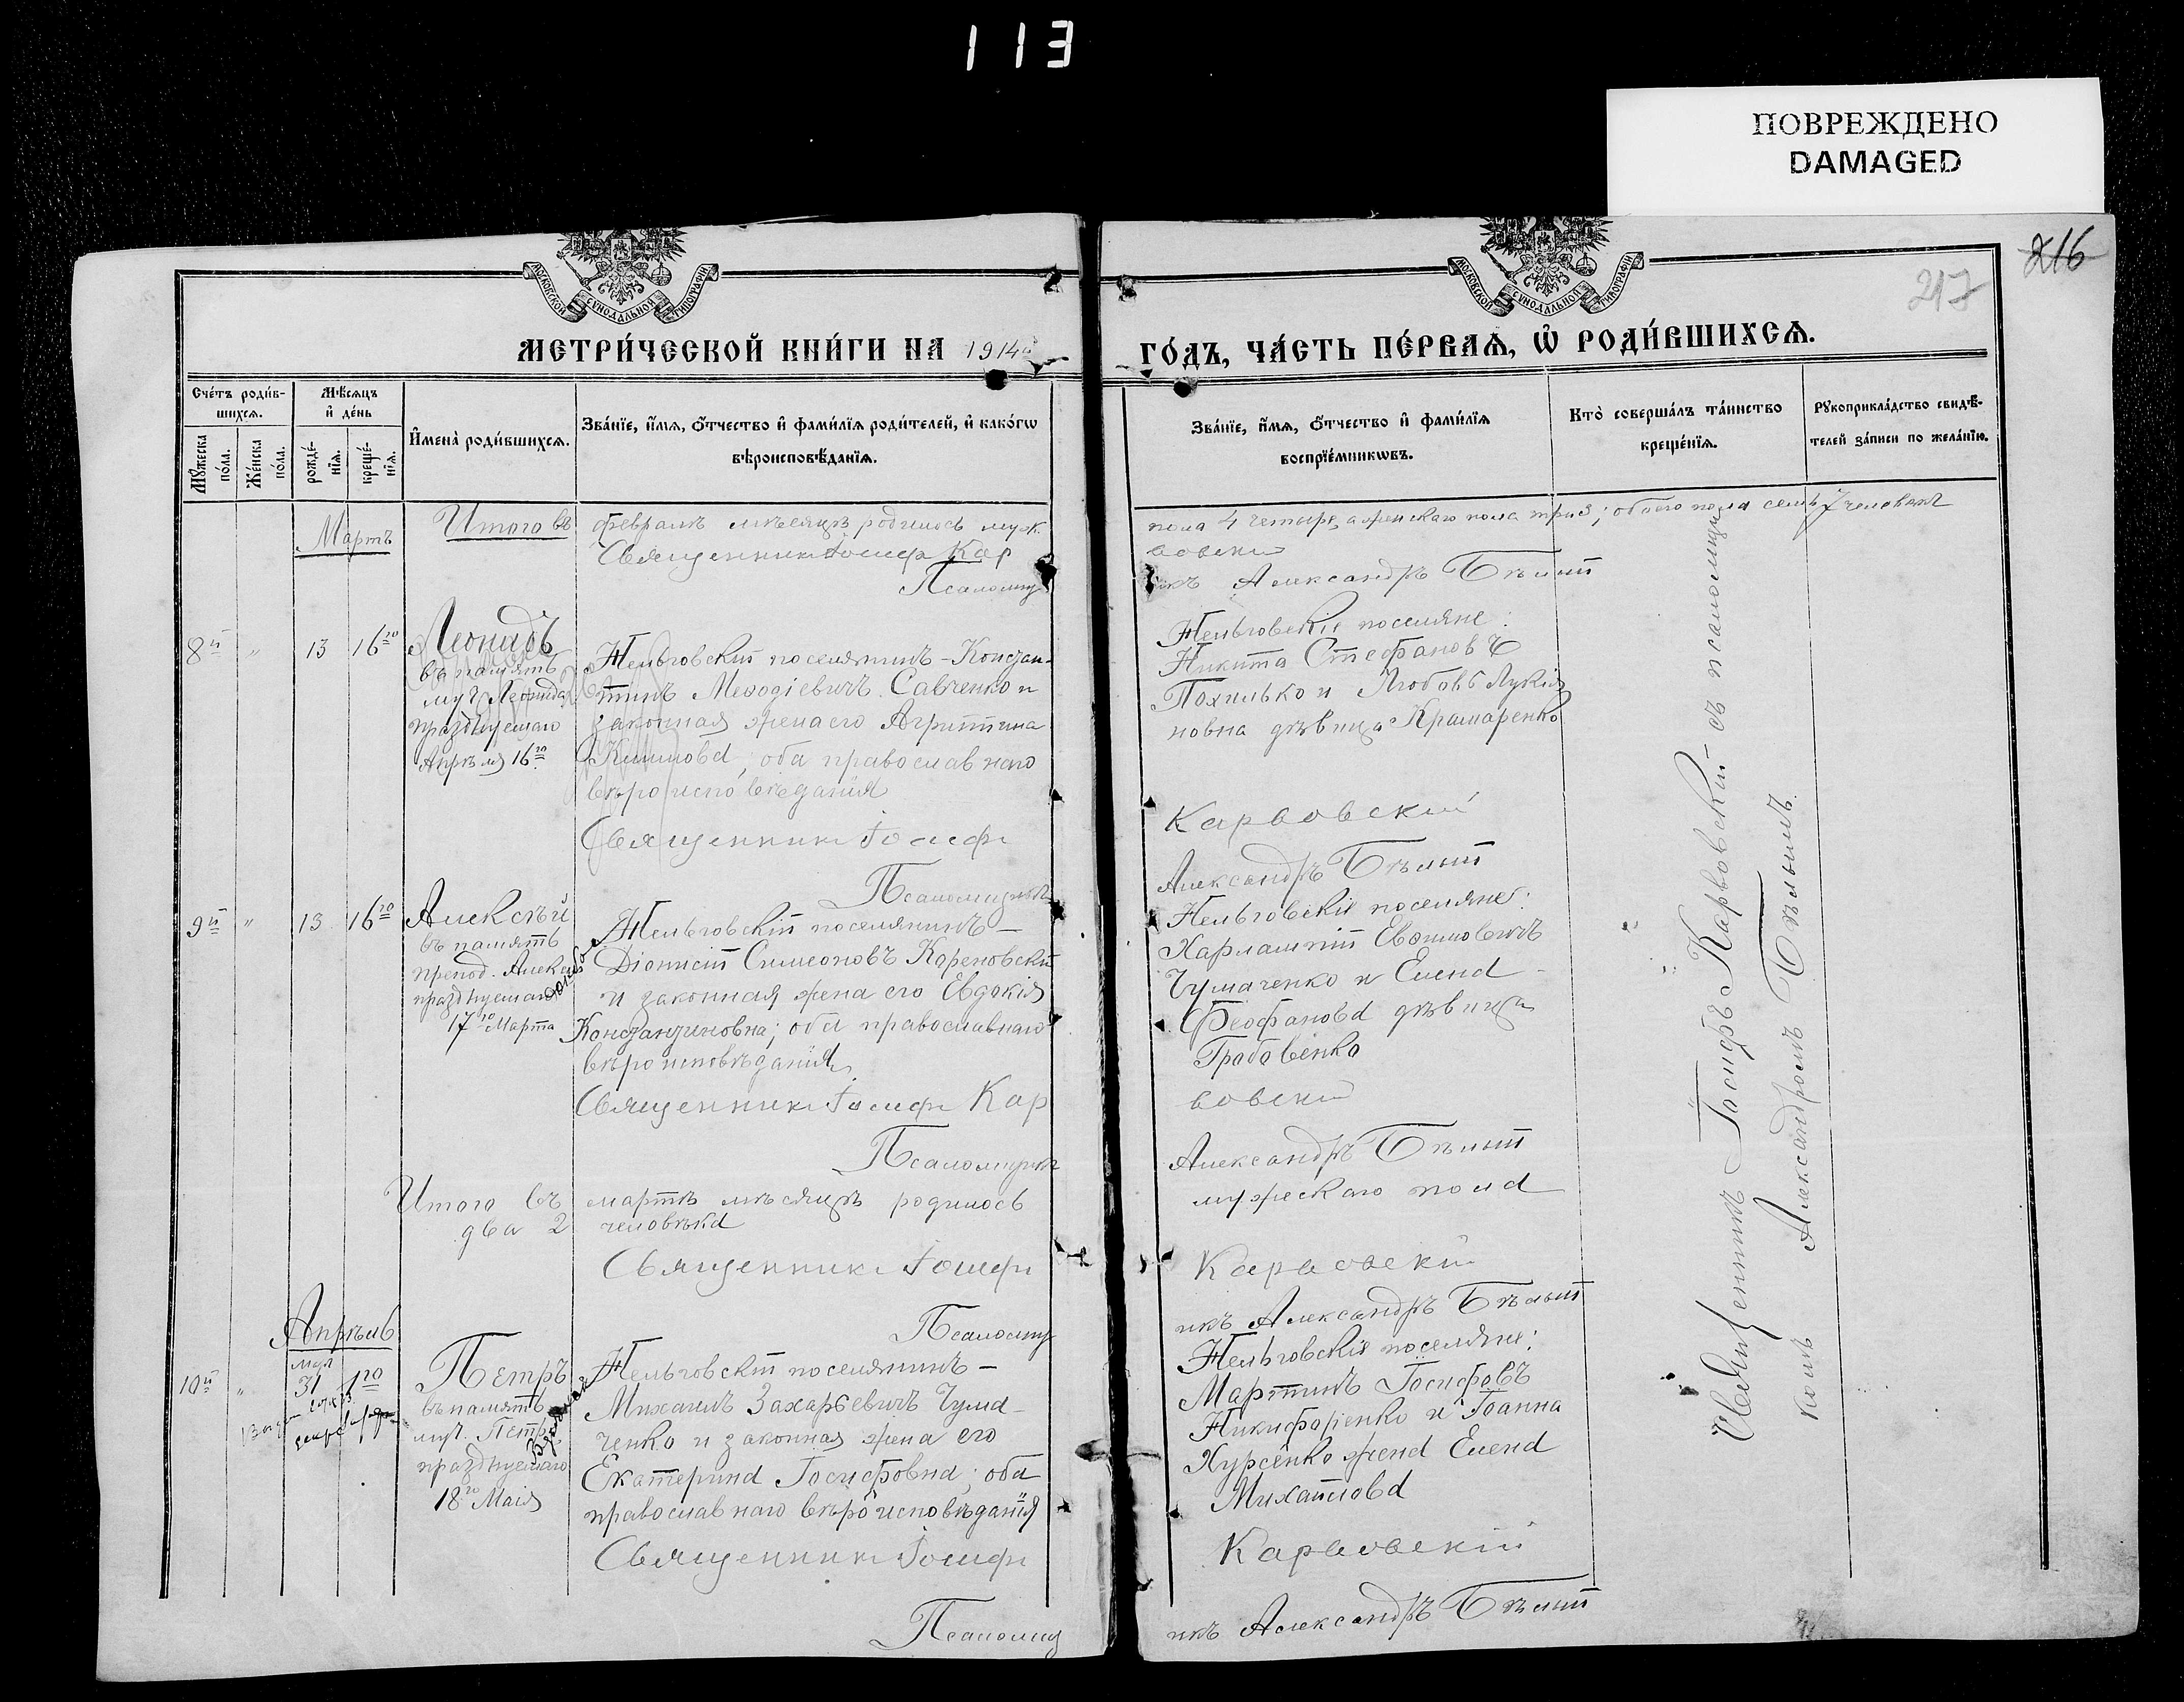 113
ПОВРЕЖДЕНО
DAMAGED
216
217
МОСКОВСКОЙ СѴНОДАЛЬНОЙ ТИПОГРАФІИ
МОСКОВСКОЙ СѴНОДАЛЬНОЙ ТИПОГРАФІИ
МЕТРИ́ЧЕСКОЙ КНИ́ГИ НА 1914й
ГО́ДЪ, ЧА́СТЬ ПЕ́РВАѦ, Ѿ РОДИ́ВШИХСѦ.
Сче́тъ роди́в-
шихсѧ.
Мꙋ́жеска
по́ла.
Же́нска
по́ла.
Мѣ́сѧцъ
и҆ де́нь
рожде́-
нїѧ.
креще́-
нїѧ.
И҆мена̀ роди́вшихсѧ.
Зва́нїе, и҆́мѧ, ѻ҆́тчество и҆ фами́лїѧ роди́телей, и҆ како́гѡ
вѣроисповѣ́данїѧ.
Зва́нїе, и҆́мѧ, ѻ҆́тчество и҆ фами́лїѧ
воспрїе́мникѡвъ.
Кто̀ соверша́лъ та́инство
креще́нїѧ.
Рꙋкоприкла́дство свидѣ́-
телей за́писи по жела́нїю.
Итого въ февралѣ мѣсяцѣ родилось муж.
пола 4 четыре, а женскаго пола три 3; обоего пола семь 7 человѣкъ
Мартъ
Священникъ Іосифъ Кар
вовскій
Псаломщ
икъ Александръ Бѣлый
8й " 13 16го
Леонидъ
въ память
муч. Леонида
празднуемаго
Апрѣля 16го
Жельговскій поселянинъ - Констан-
тинъ Меѳодіевичъ Савченко и
законная жена его Агриппина
Климова, оба православнаго
вѣроисповѣданія
Священникъ Іосифъ
Псаломщикъ
Жельговскіе поселяне:
Никита Стефановъ
Похилько и Любовь Лукія
новна дѣвица Крамаренко
Карвовскій
Александръ Бѣлый
9й " 13 16го
Алексѣй
въ память
препод. Алексія
празднуемаго
17го Марта
Жельговскій поселянинъ -
Діонисій Симеоновъ Кореновскій
и законная жена его Евдокія
Константиновна; оба православнаго
вѣроисповѣданія
Священникъ Іосифъ Кар
Псаломщикъ
Жельговскіе поселяне:
Харлампій Евѳимовичъ
Чумаченко и Елена
Феофанова дѣвица
Грабовенко
вовскій
Александръ Бѣлый
Итого въ мартѣ мѣсяцѣ родилось
мужескаго пола
два 2 человѣка
Священникъ Іосифъ
Карвовскій
Псаломщ
икъ Александръ Бѣлый
Апрѣль
10й " 31 1го
Петръ
въ память
муч. Петра
празднуемаго
18го Маія
Жельговскій поселянинъ -
Михаилъ Захарьевичъ Чума-
ченко и законная жена его
Екатерина Іосифовна; оба
православнаго вѣроисповѣданія
Священникъ Іосифъ
Псаломщ
Жельговскіе поселяне:
Мартинъ Іосифовъ
Никифоренко и Іоанна
Хурсенко жена Елена
Михайлова
Карвовскій
икъ Александръ Бѣлый
Священникъ Іосифъ Карвовскій съ псаломщи
комъ Александромъ Бѣлымъ.